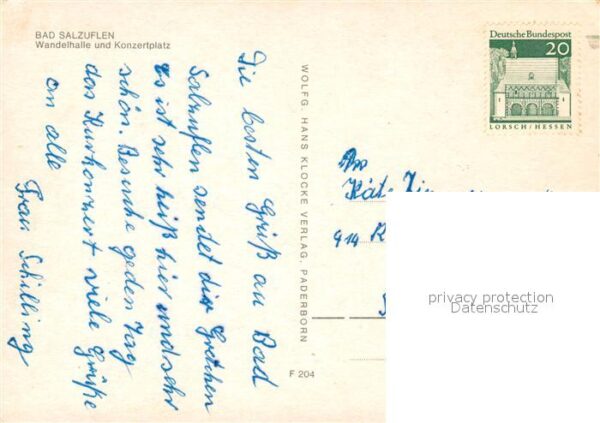 BAD SALZUFLEN
Wandelhalle und Konzertplatz
Die besten Grüß au Bad
Salzuflen sendet dir Gretchen
Es ist sehr heiß hier und sehr
schön. Besuche geden Tag
das Kurkonzert viele Grüße
an alle
Frau Schilling
WOLFG. HANS KLOCKE VERLAG, PADERBORN
F 204
Deutsche Bundespost
20
LORSCH/HESSEN
An
Käte
414 K
privacy protection
Datenschutz